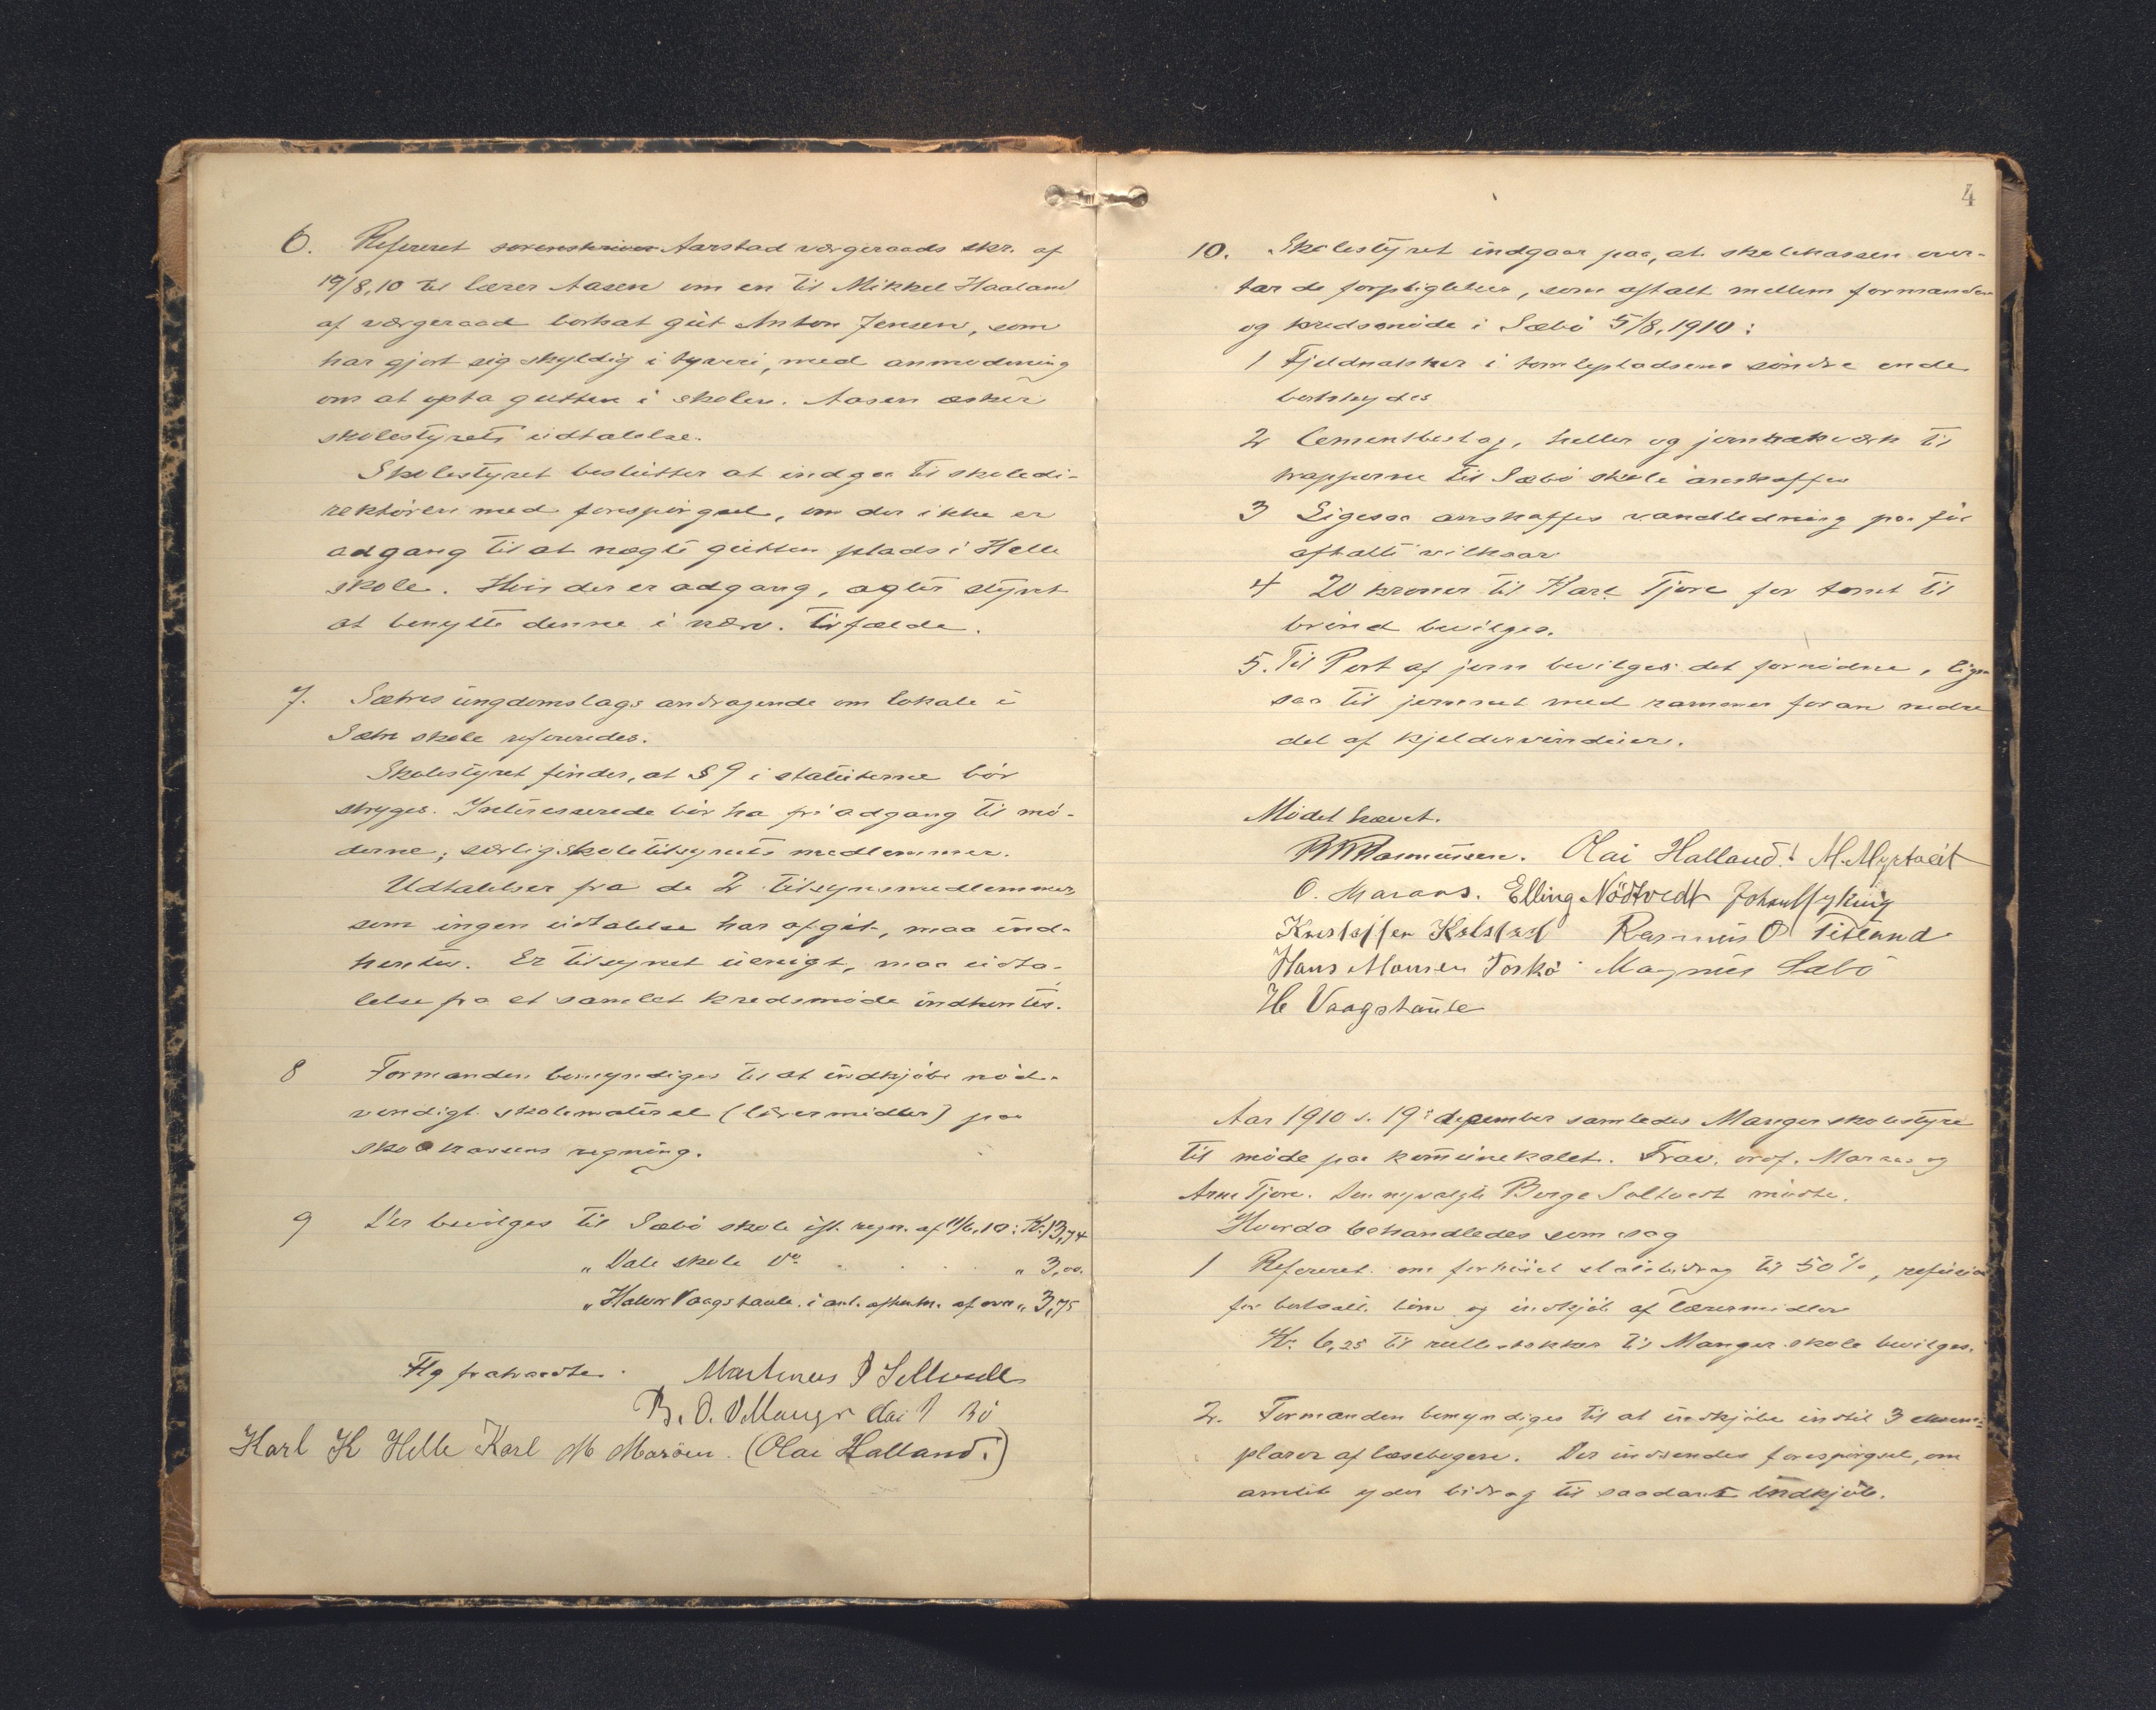 6. Refereret sorenskriver Aarstad værgeraads skr. af
19/8,10 til lærer Aasen om en til Mikkel Haaland
af værgeraad bortsat gut Anton Jensen, som
har gjort sig skyldig i tyveri, med anmodning
om at opta gutten i skolen. Aasen æsker
skolestyrets udtalelse.
Skolestyret beslutter at indgaa til skoledi-
rektøren med forespørgsel, om der ikke er
adgang til at nægte gutten plads i Helle
skole. Hvis der er adgang, agter styret
at benytte denne i nærv. tilfælde.
7. Sætres ungdomslags andragende om lokale i
Sætre skole refereredes.
Skolestyret finder, at § 9 i statuterne bør
stryges. Interesserede bør ha fri adgang til mø-
derne, særlig skoletilsynets medlemmer.
Udtalelser fra de 2 tilsynsmedlemmer
som ingen udtalelse har afgit, maa ind-
hentes. Er tilsynet uenigt, maa udta-
lelse fra et samlet kredsmøde indhentes.
8 Formanden bemyndiges til at indkjøbe nød-
vendigt skolemateriel (læremidler) paa
skolekassens regning.
9 Der bevilges til Sæbø skole ifl. regn. af 11/6,10: Kr. 13,74
" Dale skole do " 3,00
" Halvor Vaagstaule i anl. afhentn. af ovn " 3,75
Flg fratraadte. Martinus
B. O. Manger Olai Bø
Karl K Helle Karl M Marøen. (Olai Halland.)
4
10. Skolestyret indgaar paa, at skolekassen over-
tar de forpligtelser, som aftalt mellem formanden
og kredsmøde i Sæbø 5/8, 1910:
1 Fjeldnakker i tomtepladsens søndre ende
bortskydes
2 Cementbeslag, heller og jernrækværk til
trapperne til Sæbø skole anskaffes
3 Ligesaa anskaffes vandledning paa før
aftalte vilkaar
4 20 kroner til Karl Tjore for tomt til
brønd bevilges.
5. Til Port af jern bevilges det fornødne, lige-
saa til jernnet med rammer foran nedre
del af kjeldervinduer.
Mødet hævet.
Rasmussen. Olai Halland. M. Myrtveit
O. Maraas. Elling Nødtvedt Johan
Kristoffer Rasmus O
Hans Monsen Toskø Magnus Sæbø
H Vaagstaule
Aar 1910 d. 19de december samledes Manger skolestyre
til møde paa komunelokalet. Frav. ordf. Maraas og
Arne Tjore. Den nyvalgte Børge Soltvedt mødte.
Hvorda behandledes som sag
1 Refereret om forhøiet statsbidrag til 50%, refusion
for bortsatte børn og indkjøb af læremidler
Kr. 6,25 til rullestokker til Manger skole bevilges.
2. Formanden bemyndiges til at indkjøbe indtil 3 eksem-
plarer af læsebogen. Der indsendes forespørgsel, om
amtet yder bidrag til saadant indkjøb.